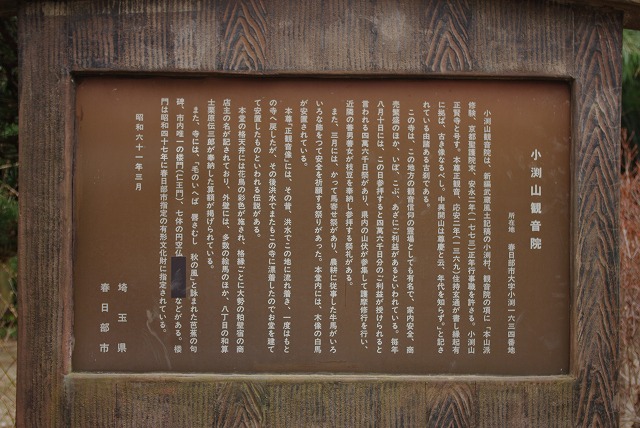 小渕山観音院
所在地 春日部市大字小渕一六三四番地
小渕山観音院は、新編武蔵風土記稿の小渕村、観音院の項に、「本山派
修験、京都聖護院末、安永二年（一七七三）正年行事職を許さる。小渕山
正賢寺と号す。本尊正観音、応安二年（一三六九）住持玄通が書し縁起有
に拠ば、古き像なるべし。中興開山は尊慶と云、年代を知らず。」と記さ
れている由緒ある古刹である。
この寺は、この地方の観音信仰の霊場としても有名で、家内安全、商
売繁盛のほか、いぼ、こぶ、あざにご利益があるといわれている。毎年
八月十日には、この日参拝すると四萬六千日分のご利益が授けられると
言われる四萬六千日祭があり、県内の山伏が参集して護摩修行を行い、
近隣の善男善女が枝豆を奉納し参拝する祭礼がある。
また、三月には、かつて馬寄せ祭があり、農耕に従事した牛馬がいろ
いろな飾りつて安全を祈願する祭りがあった。本堂内には、木像の白馬
が安置されている。
本尊「正観音像」には、その昔、洪水でこの地に流れ着き、一度はもと
の寺へ戻したが、その後洪水でまたもこの寺に漂着したのでお堂を建て
て安置したものといわれる伝説がある。
本堂の格天井には花鳥の彩色が施され、格縁ごとに大勢の粕壁宿の商
店主の名が記されており、外壁には、多数の絵馬のほか、八丁目の和算
士栗原伝三郎が奉納した算額が掲げられている。
また、寺には、「毛のいへば 唇さむし 秋の風」と詠まれた芭蕉の句
碑、市内唯一の楼門（仁王門）、七体の円空仏 などがある。楼
門は昭和四十七年に春日部市指定の有形文化財に指定されている。
昭和六十一年三月
埼玉県
春日部市